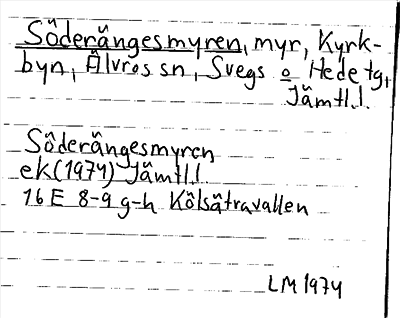 Söderängesmyren, myr, Kyrk-
byn, Älvros sn, Svegs o Hede tg,
Jämtl.l.
Söderängesmyren
ek(1974) Jämtl.l
16 E 8-9 g-h Kölsätravallen
LM 1974